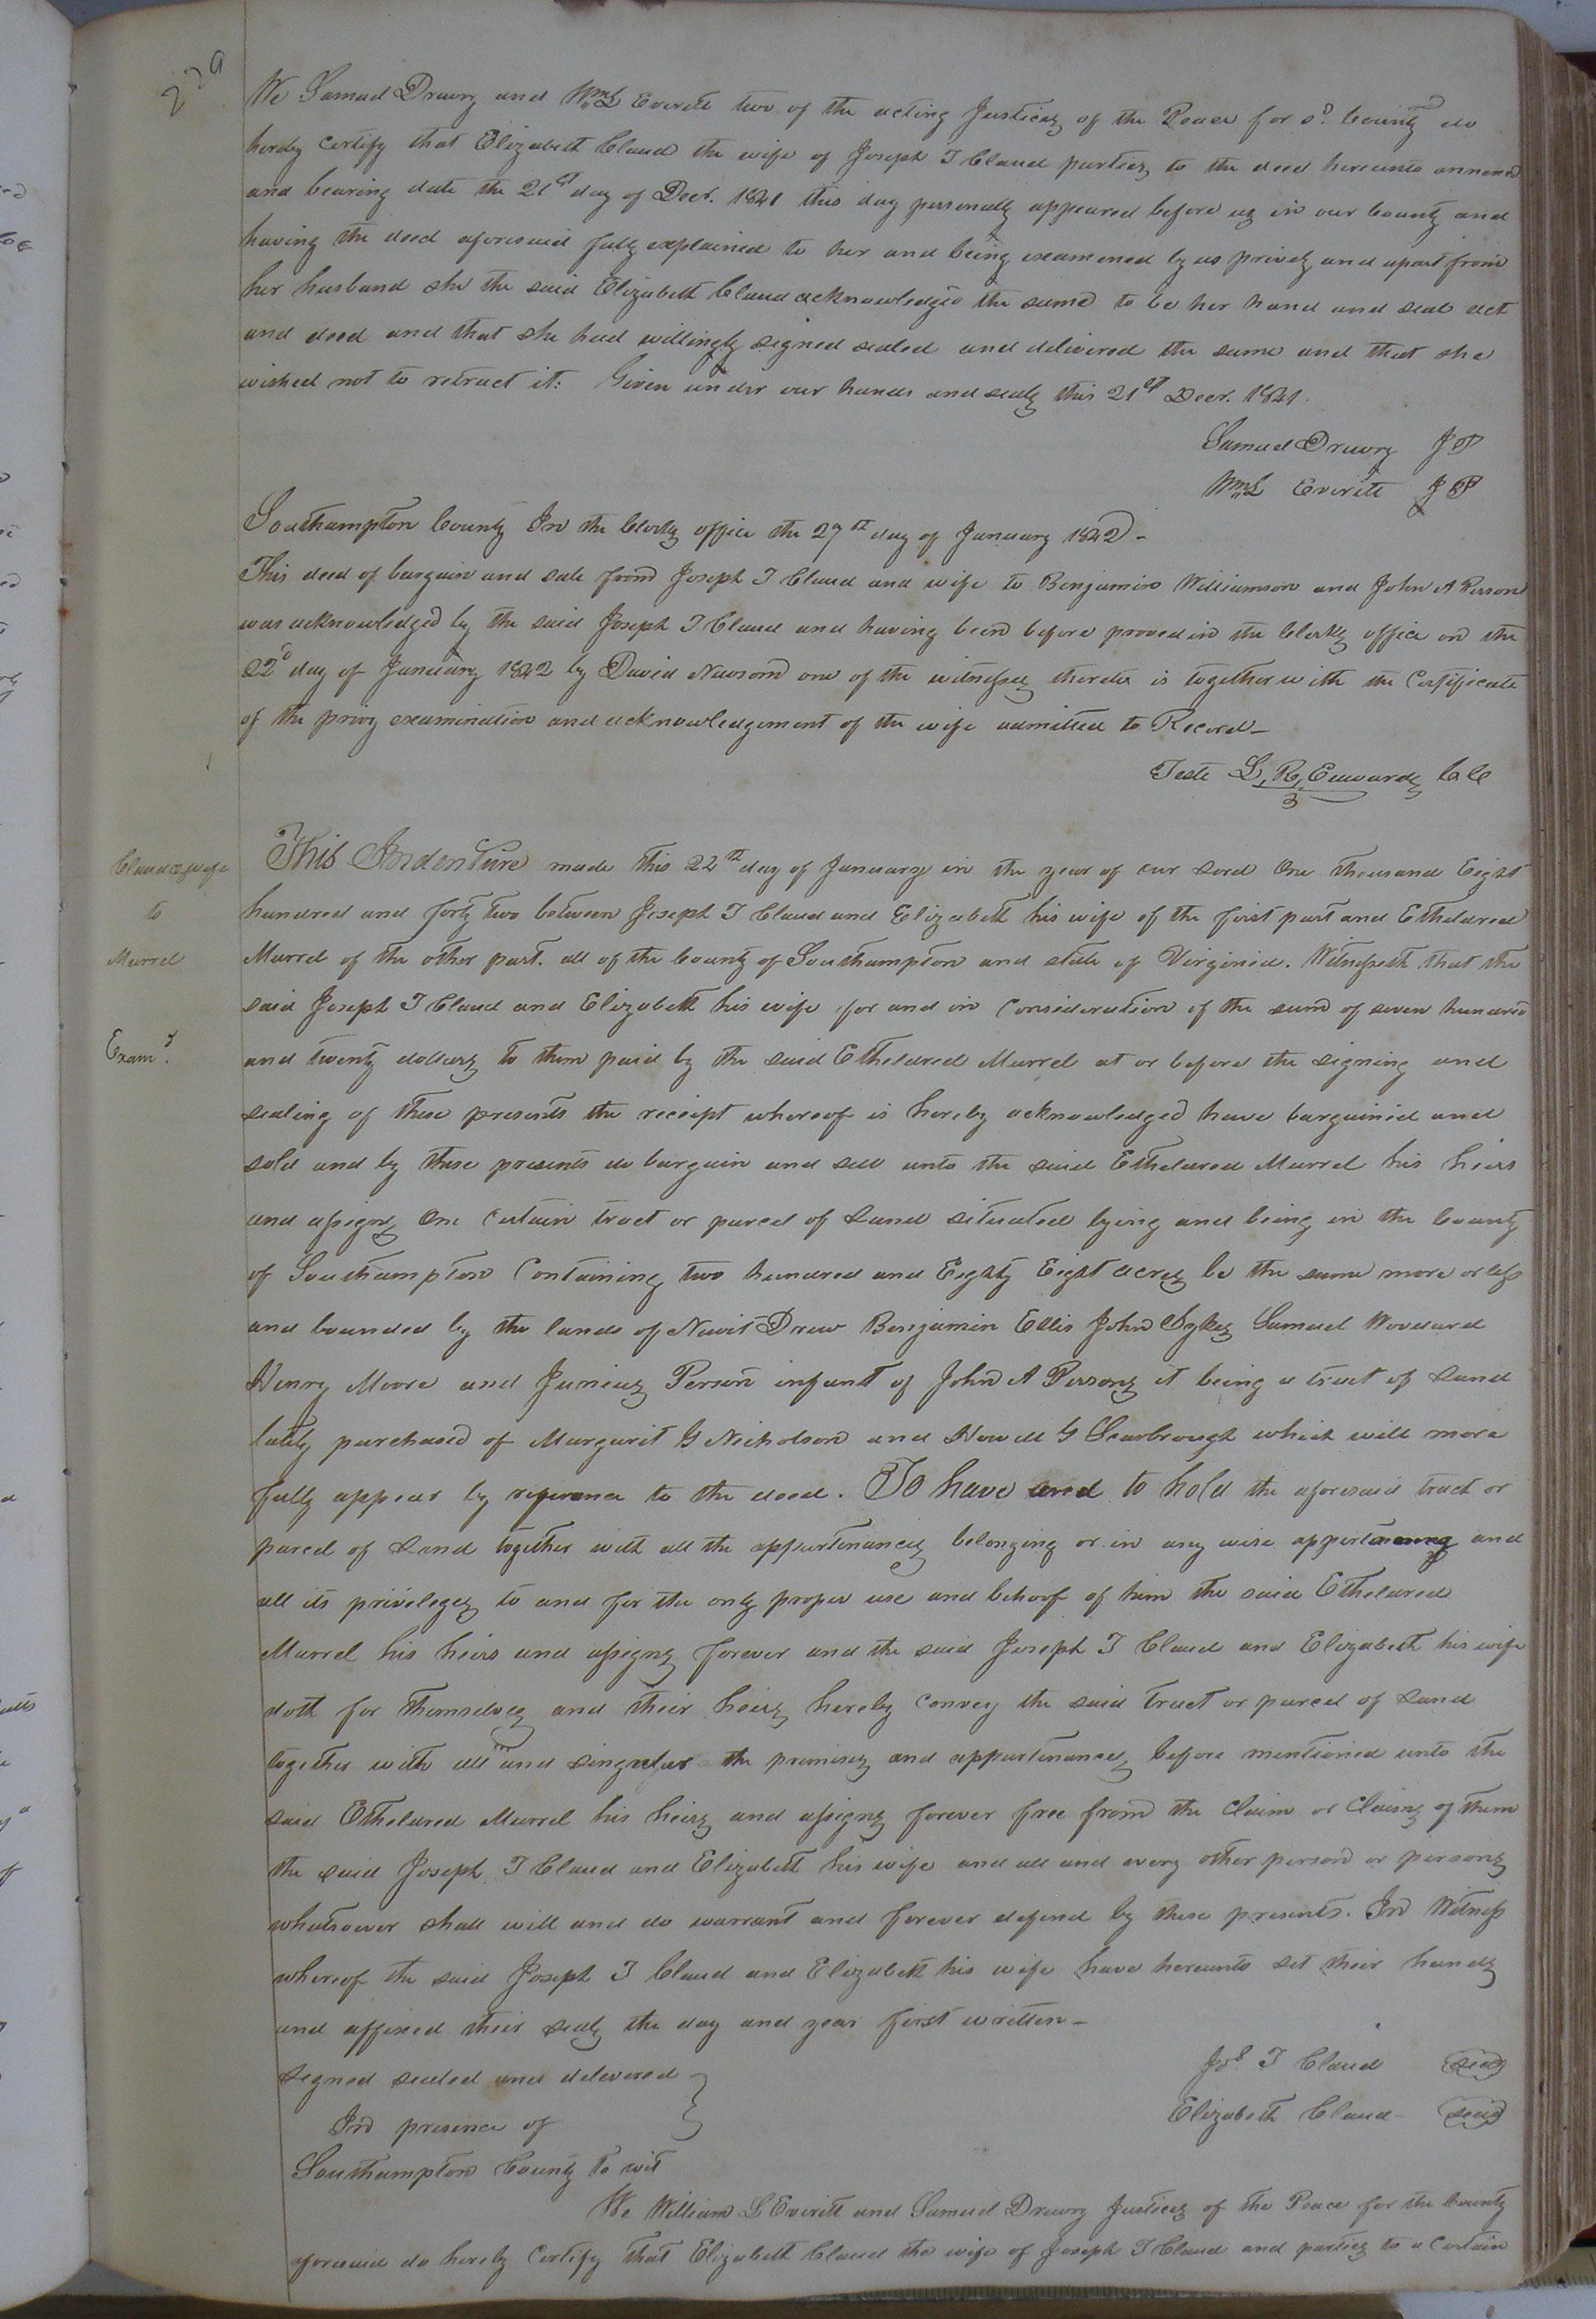 229
We Samuel Drewry and Wm. L Everitt two of the acting Justices of the Peace for sd. County do
hereby certify that Elizabeth Claud the wife of Joseph T Claud parties to the deed hereunto annexed
and bearing date the 21st day of Decr. 1841 this day personally appeared before us in our County and
having the deed aforesaid fully explained to her and being examened by us privily and apart from
her husband she the said Elizabeth Claud acknowledged the same to be her hand and seal act
and deed and that she had willingly signed sealed and delivered the same and that she
wished not to retract it: Given under our hands and seals this 21st Decr. 1841.
Samuel Drewry J P
Wm. L Everitt J P
Southampton County In the Clerks office the 27th day of January 1842 -
This deed of bargain and sale from Joseph T Claud and wife to Benjamin Williamson and John A Person
was acknowledged by the said Joseph T Claud and having been before proved in the Clerks office on the
22d day of January 1842 by David Newsom one of the witnesses thereto is together with the Certificate
of the privy examination and acknowledgement of the wife admitted to Record -
Teste L. R. Edwards C C
Claud & wife
to
Murrel
Examd.
This Indenture made this 22th day of January in the year of our Lord One thousand Eight
hundred and forty two between Joseph T Claud and Elizabeth his wife of the first part and Etheldred
Murrel of the other part. all of the County of Southampton and state of Virginia. Witnesseth that the
said Joseph T Claud and Elizabeth his wife for and in Consideration of the sum of seven hundred
and twenty dollars to them paid by the said Etheldred Murrel at or before the signing and
sealing of these presents the receipt whereof is hereby acknowledged have bargained and
sold and by these presents do bargain and sell unto the said Etheldred Murrel his heirs
and assigns One certain tract or parcel of Land situated lying and being in the County
of Southampton Containing two hundred and Eighty Eight acres be the same more or less
and bounded by the lands of Newit Drew Benjamin Ellis John Sykes Samuel Woodard
Henry Moore and Junius Person infant of John A Persons it being a tract of Land
lately purchased of Margarit G Nicholson and Howell G Scarbrough which will more
fully appear by referance to the deed. To have and to hold the aforesaid tract or
parcel of Land together with all the appurtenances belonging or in any wise appertaining and
all its privileges to and for the only proper use and behoof of him the said Etheldred
Murrel his heirs and assigns forever and the said Joseph T Claud and Elizabeth his wife
doth for themselves and their heirs hereby convey the said tract or parcel of Land
together with all and singular the premises and appurtenances before mentioned unto the
said Etheldred Murrel his heirs and assigns forever free from the Claim or Claims of them
the said Joseph T Claud and Elizabeth his wife and all and every other person or persons
whatsoever shall will and do warrant and forever defend by these presents. In Witness
whereof the said Joseph T Claud and Elizabeth his wife have hereunto set their hands
and affixed their seals the day and year first written -
signed sealed and delivered
In presence of
Jos T Claud seal
Elizabeth Claud - seal
Southampton County to wit
We William L Everitt and Samuel Drewry Justices of the Peace for the County
aforesaid do hereby Certify that Elizabeth Claud the wife of Joseph T Claud and parties to a Certain